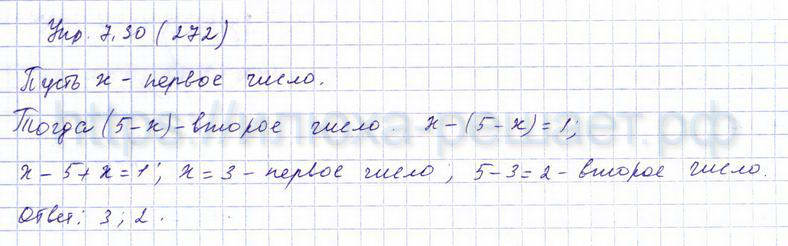 Упр. 7.30 (272)
Пусть x - первое число.
Тогда (5-x) - второе число. x-(5-x)=1;
x-5+x=1; x=3 - первое число; 5-3=2 - второе число.
Ответ: 3; 2.